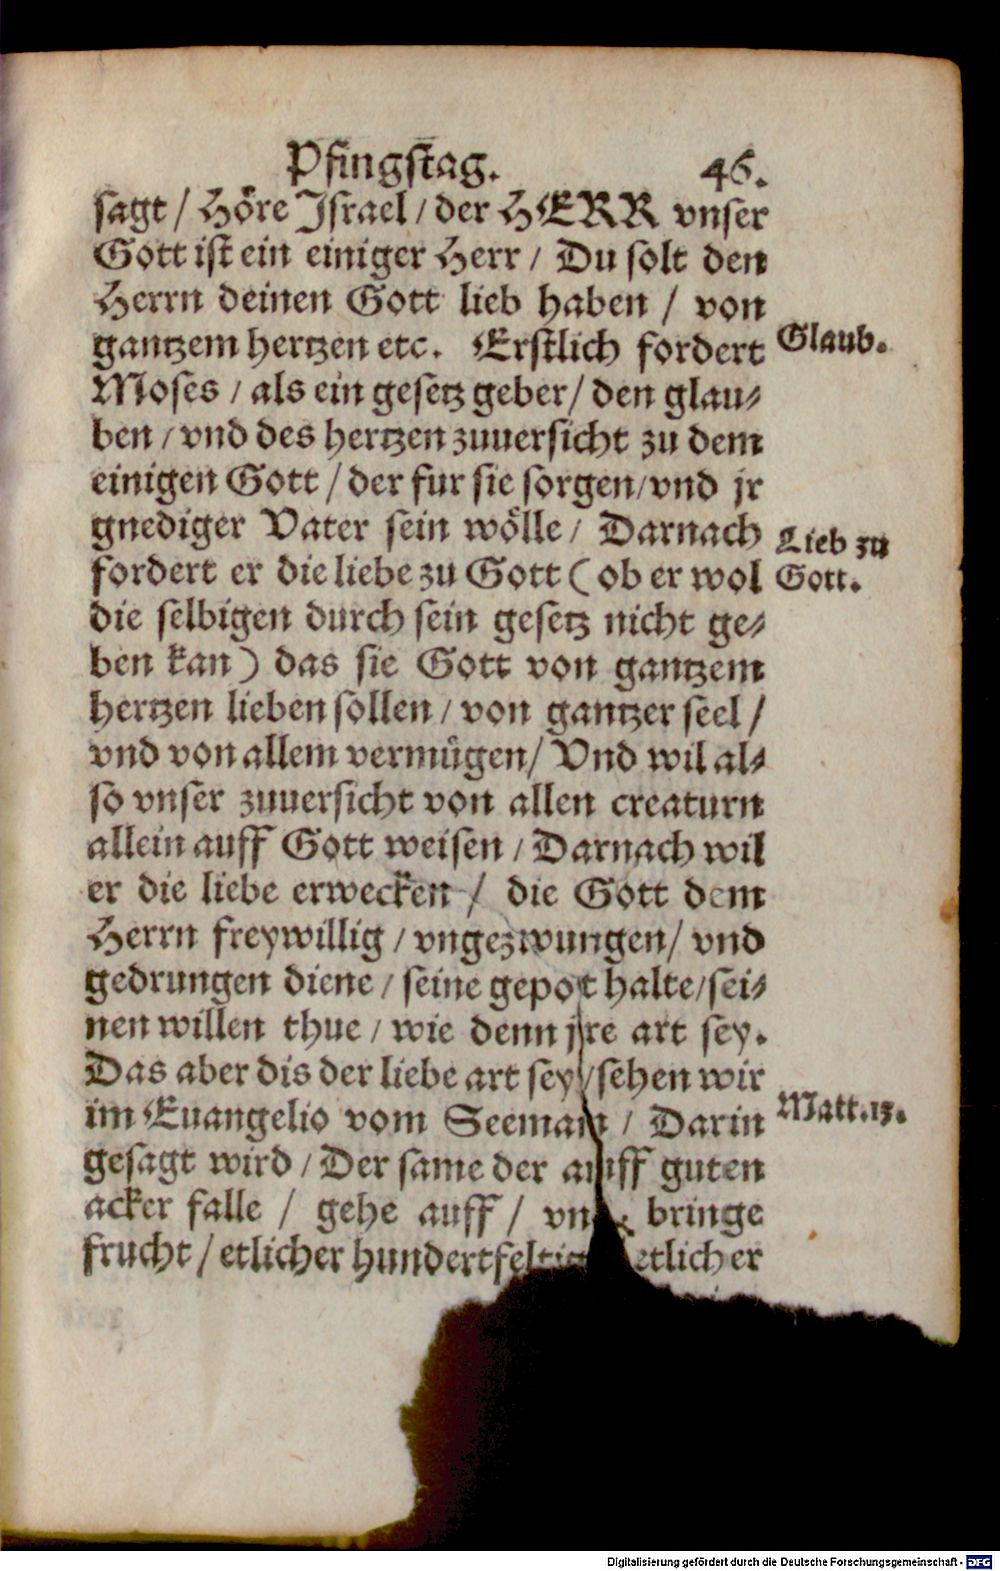 Pfingstag. 46.
sagt / Höre Israel / der HERR vnser
Gott ist ein einiger Herr / Du solt den
Herrn deinen Gott lieb haben / von
gantzem hertzen etc. Erstlich fordert
Glaub.
Moses / als ein gesetz geber / den glau⸗
ben / vnd des hertzen zuuersicht zu dem
einigen Gott / der fur sie sorgen / vnd jr
gnediger Vater sein wölle / Darnach
Lieb zu
fordert er die liebe zu Gott (ob er wol
Gott.
die selbigen durch sein gesetz nicht ge⸗
ben kan) das sie Gott von gantzem
hertzen lieben sollen / von gantzer seel /
vnd von allem vermügen / Vnd wil al⸗
so vnser zuuersicht von allen creaturn
allein auff Gott weisen / Darnach wil
er die liebe erwecken / die Gott dem
Herrn freywillig / vngezwungen / vnd
gedrungen diene / seine gepot halte / sei⸗
nen willen thue / wie denn jre art sey.
Das aber dis der liebe art sey / sehen wir
im Euangelio vom Seeman / Darin
Matt. 13.
gesagt wird / Der same der auff guten
acker falle / gehe auff / vnd bringe
frucht / etlicher hundertfeltig etlicher
Digitalisierung gefördert durch die Deutsche Forschungsgemeinschaft - DFG